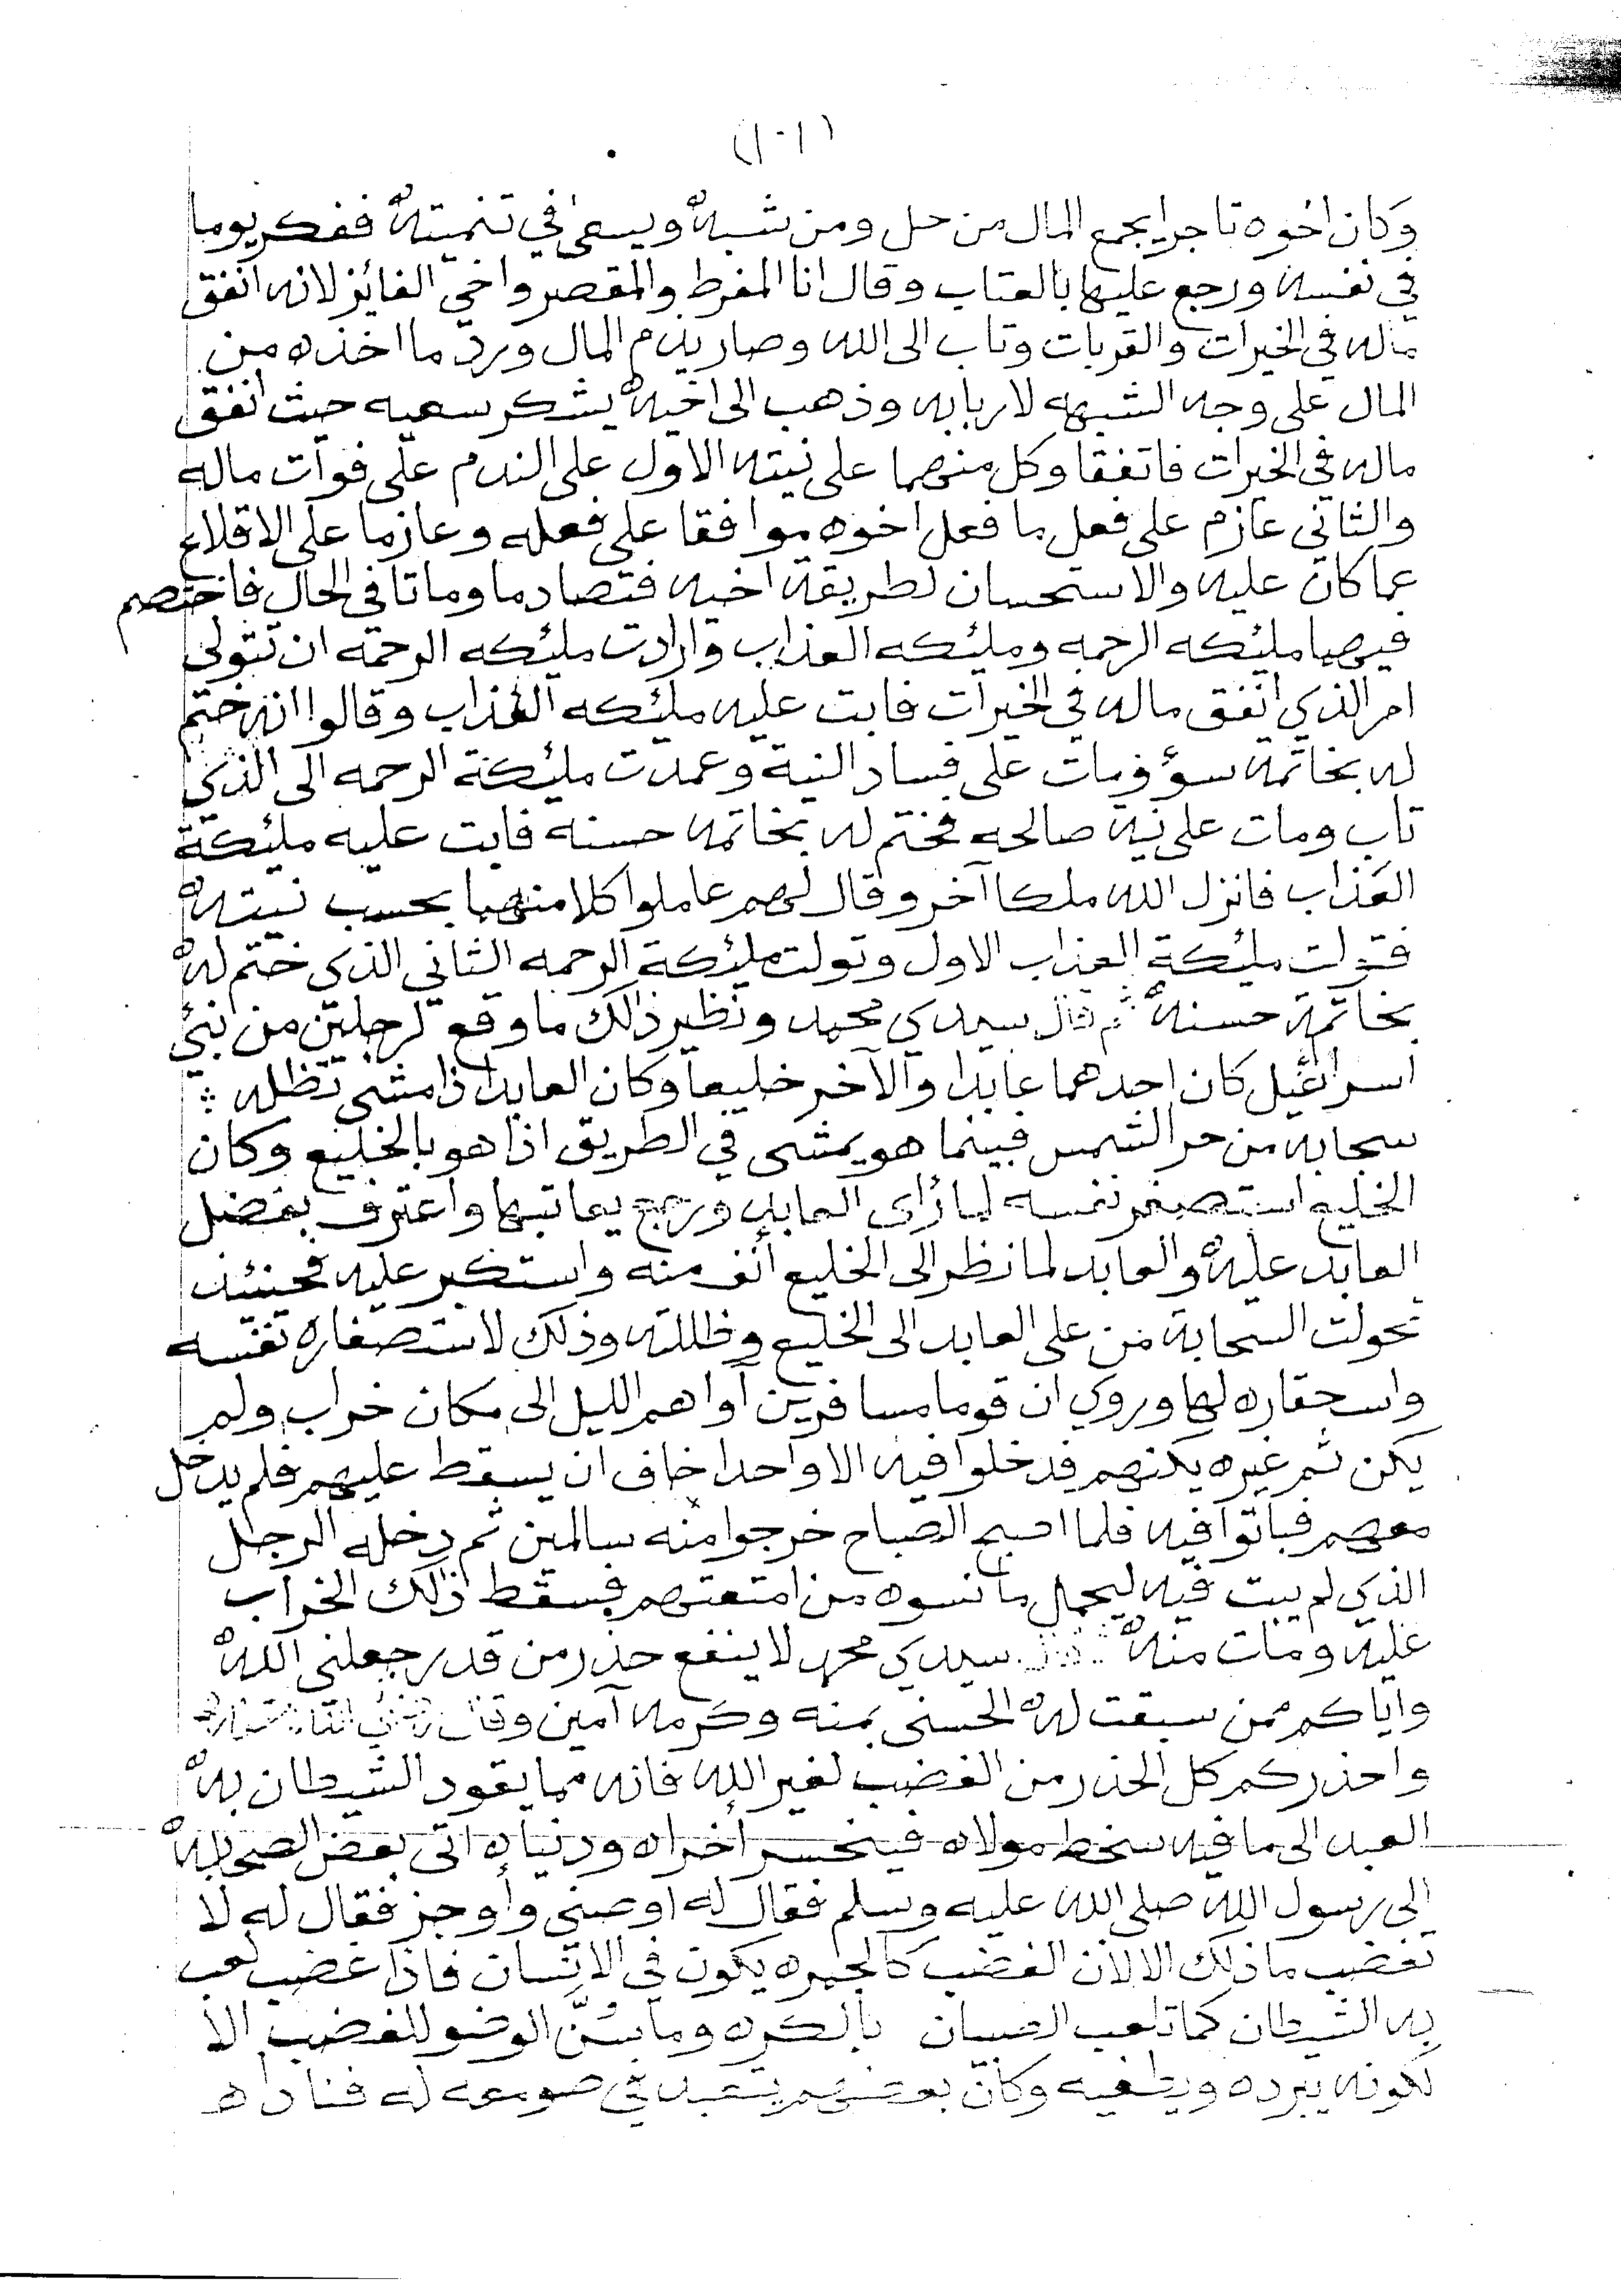 (١٠١)
وكان اخوه تاجرا يجمع المال من حل ومن شبه ويسعى في تنميته ففكر يوما
في نفسه ورجع عليها بالعتاب وقال انا المفرط والمقصر واخي الفائز لانه انفق
ماله في الخيرات والقربات وتاب الى الله وصار يذم المال ورد ما اخذه من
المال على وجه الشبهه لاربابه وذهب الى اخيه يشكر سعيه حيث انفق
ماله في الخيرات فاتفقا وكل منهما على نيته الاول على الندم على فوات ماله
والثاني عازم على فعل ما فعل اخوه موافقا على فعله وعازما على الاقلاع
عما كان عليه والاستحسان لطريقة اخيه فتصادما وماتا في الحال فاختصم
فيهما ملئكه الرحمه وملئكه العذاب وارادت ملئكه الرحمه ان تتولى
امر الذي انفق ماله في الخيرات فابت عليه ملئكه العذاب وقالوا انه ختم
له بخاتمه سوؤ ومات على فساد النية وعمدت ملئكة الرحمه الى الذي
تاب ومات على نيه صالحه فختم له بخاتمه حسنه فابت عليه ملئكة
العذاب فانزل الله ملكا آخر وقال لهم عاملوا كلا منهما بحسب نيته
فتولت ملئكة العذاب الاول وتولت ملئكة الرحمه الثاني الذي ختم له
بخاتمة حسنه ثم قال سيدي محمد ونظير ذلك ما وقع لرجلين من بني
اسرائيل كان احدهما عابدا والآخر خليعا وكان العابد اذا مشى تظله
سحابه من حر الشمس فبينما هو يمشى في الطريق اذا هو بالخليع وكان
الخليع استصغر نفسه لما رأى العابد ورجع يعاتبها واعترف بفضل
العابد عليه والعابد لما نظر الى الخليع أنف منه واستكبر عليه فحينئذ
تحولت السحابة من على العابد الى الخليع وظللته وذلك لاستصغاره نفسه
واسحقاره لها وروي ان قوما مسافرين آواهم الليل الى مكان خراب ولم
يكن ثم غيره يكنهم فدخلوا فيه الا واحدا خاف ان يسقط عليهم فلم يدخل
معهم فباتوا فيه فلما اصبح الصباح خرجوا منه سالمين ثم دخله الرجل
الذي لم يبت فيه ليحمل ما نسوه من امتعتهم فسقط ذلك الخراب
عليه ومات منه قال سيدي محمد لا ينفع حذر من قدر جعلني الله
واياكم ممن سبقت له الحسنى بمنه وكرمه آمين وقال
واحذركم كل الحذر من الغضب لغير الله فانه مما يقود الشيطان به
العبد الى ما فيه سخط مولاه فيخسر أخراه ودنياه اتى بعض الصحابه
الى رسول الله صلى الله عليه وسلم فقال له اوصني وأوجز فقال له لا
تغضب ما ذلك الا لان الغضب كالجمره يكون في الانسان فاذا غضب لعب
به الشيطان كما تلعب الصبيان بالكره وما سُنَّ الوضو للغضب الا
لكونه يبرده ويطفيه وكان بعضهم يتعبد في صومعه له فناداه